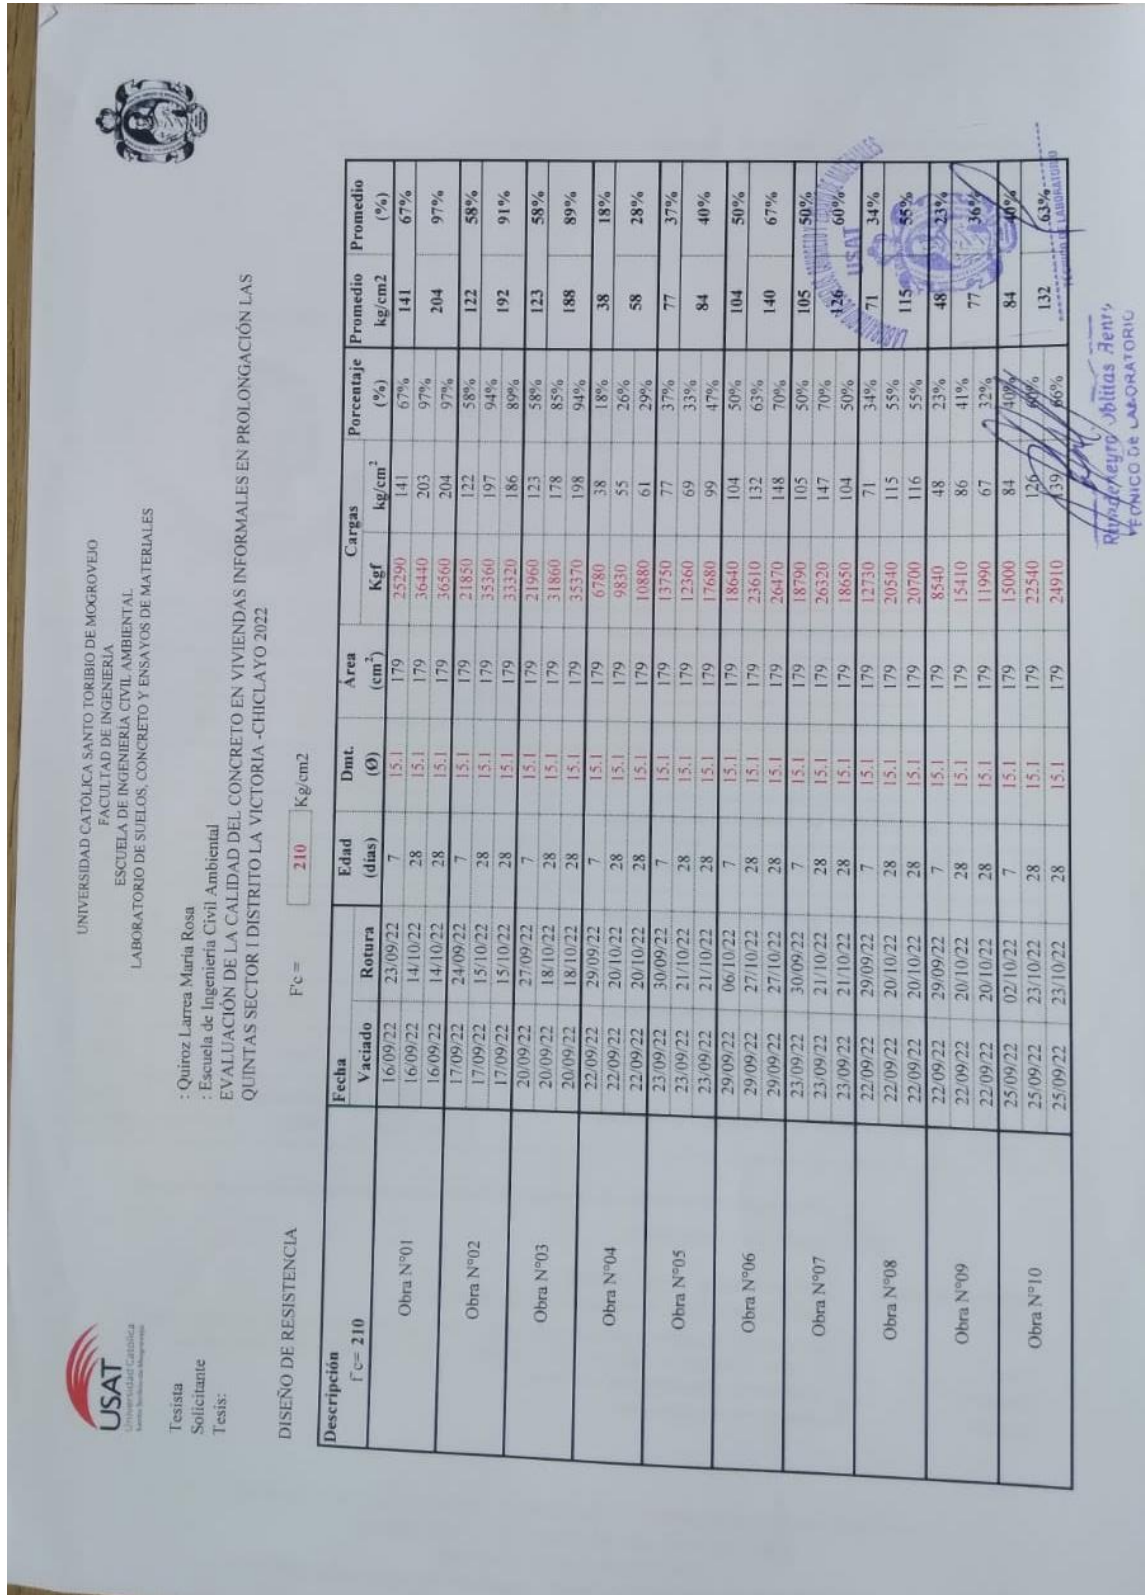 USAT
Universidad Católica
Santo Toribio de Mogrovejo
UNIVERSIDAD CATÓLICA SANTO TORIBIO DE MOGROVEJO
FACULTAD DE INGENIERÍA
ESCUELA DE INGENIERÍA CIVIL AMBIENTAL
LABORATORIO DE SUELOS, CONCRETO Y ENSAYOS DE MATERIALES
Tesista : Quiroz Larrea María Rosa
Solicitante : Escuela de Ingeniería Civil Ambiental
Tesis: EVALUACIÓN DE LA CALIDAD DEL CONCRETO EN VIVIENDAS INFORMALES EN PROLONGACIÓN LAS
QUINTAS SECTOR I DISTRITO LA VICTORIA -CHICLAYO 2022
DISEÑO DE RESISTENCIA F'c = 210 Kg/cm2
Descripción Fecha Edad Dmt. Área Cargas Porcentaje Promedio Promedio
f'c= 210 Vaciado Rotura (días) (Ø) (cm²) Kgf kg/cm² (%) kg/cm2 (%)
16/09/22 23/09/22 7 15.1 179 25290 141 67% 141 67%
Obra N°01 16/09/22 14/10/22 28 15.1 179 36440 203 97% 204 97%
16/09/22 14/10/22 28 15.1 179 36560 204 97%
17/09/22 24/09/22 7 15.1 179 21850 122 58% 122 58%
Obra N°02 17/09/22 15/10/22 28 15.1 179 35360 197 94% 192 91%
17/09/22 15/10/22 28 15.1 179 33320 186 89%
20/09/22 27/09/22 7 15.1 179 21960 123 58% 123 58%
Obra N°03 20/09/22 18/10/22 28 15.1 179 31860 178 85% 188 89%
20/09/22 18/10/22 28 15.1 179 35370 198 94%
22/09/22 29/09/22 7 15.1 179 6780 38 18% 38 18%
Obra N°04 22/09/22 20/10/22 28 15.1 179 9830 55 26% 58 28%
22/09/22 20/10/22 28 15.1 179 10880 61 29%
23/09/22 30/09/22 7 15.1 179 13750 77 37% 77 37%
Obra N°05 23/09/22 21/10/22 28 15.1 179 12360 69 33% 84 40%
23/09/22 21/10/22 28 15.1 179 17680 99 47%
29/09/22 06/10/22 7 15.1 179 18640 104 50% 104 50%
Obra N°06 29/09/22 27/10/22 28 15.1 179 23610 132 63% 140 67%
29/09/22 27/10/22 28 15.1 179 26470 148 70%
23/09/22 30/09/22 7 15.1 179 18790 105 50% 105 50%
Obra N°07 23/09/22 21/10/22 28 15.1 179 26320 147 70% 126 60%
23/09/22 21/10/22 28 15.1 179 18650 104 50%
22/09/22 29/09/22 7 15.1 179 12730 71 34% 71 34%
Obra N°08 22/09/22 20/10/22 28 15.1 179 20540 115 55% 115 55%
22/09/22 20/10/22 28 15.1 179 20700 116 55%
22/09/22 29/09/22 7 15.1 179 8540 48 23% 48 23%
Obra N°09 22/09/22 20/10/22 28 15.1 179 15410 86 41% 77 36%
22/09/22 20/10/22 28 15.1 179 11990 67 32%
25/09/22 02/10/22 7 15.1 179 15000 84 40% 84 40%
Obra N°10 25/09/22 23/10/22 28 15.1 179 22540 126 60% 132 63%
25/09/22 23/10/22 28 15.1 179 24910 139 66%
USAT
TÉCNICO DE LABORATORIO
Oblitas Henry
TECNICO De LABORATORIO